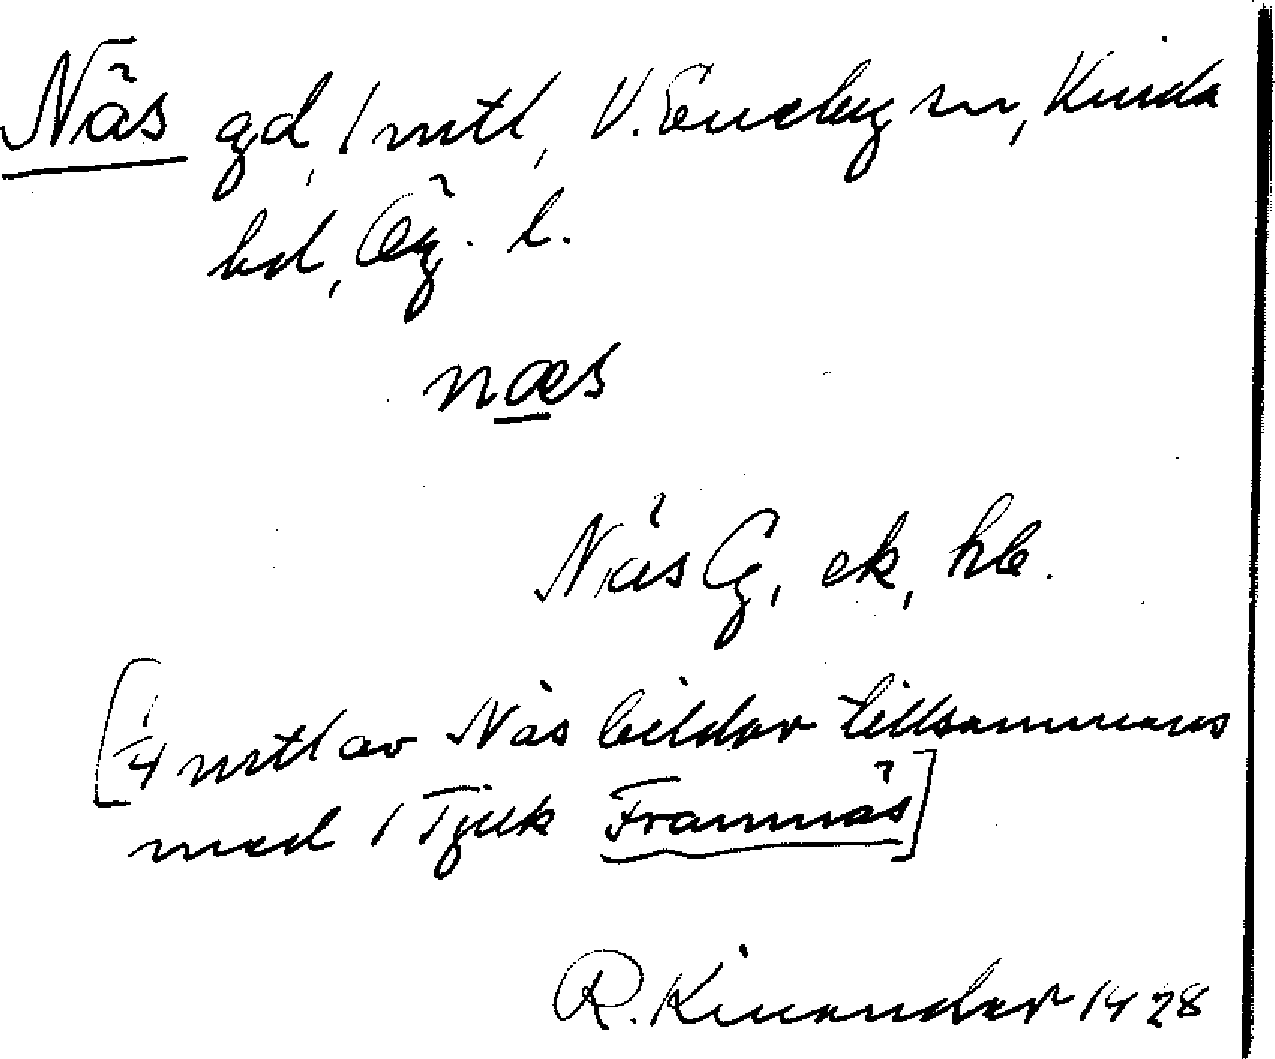 Näs gd, 1 mtl, V. Eneby sn, Kinda
hd, Ög. l.
næs
Näs G, ek, hb.
[1/4 mtl av Näs bildar tillsammans
med 1 Tjuk Framnäs]
R. Kinander 1928